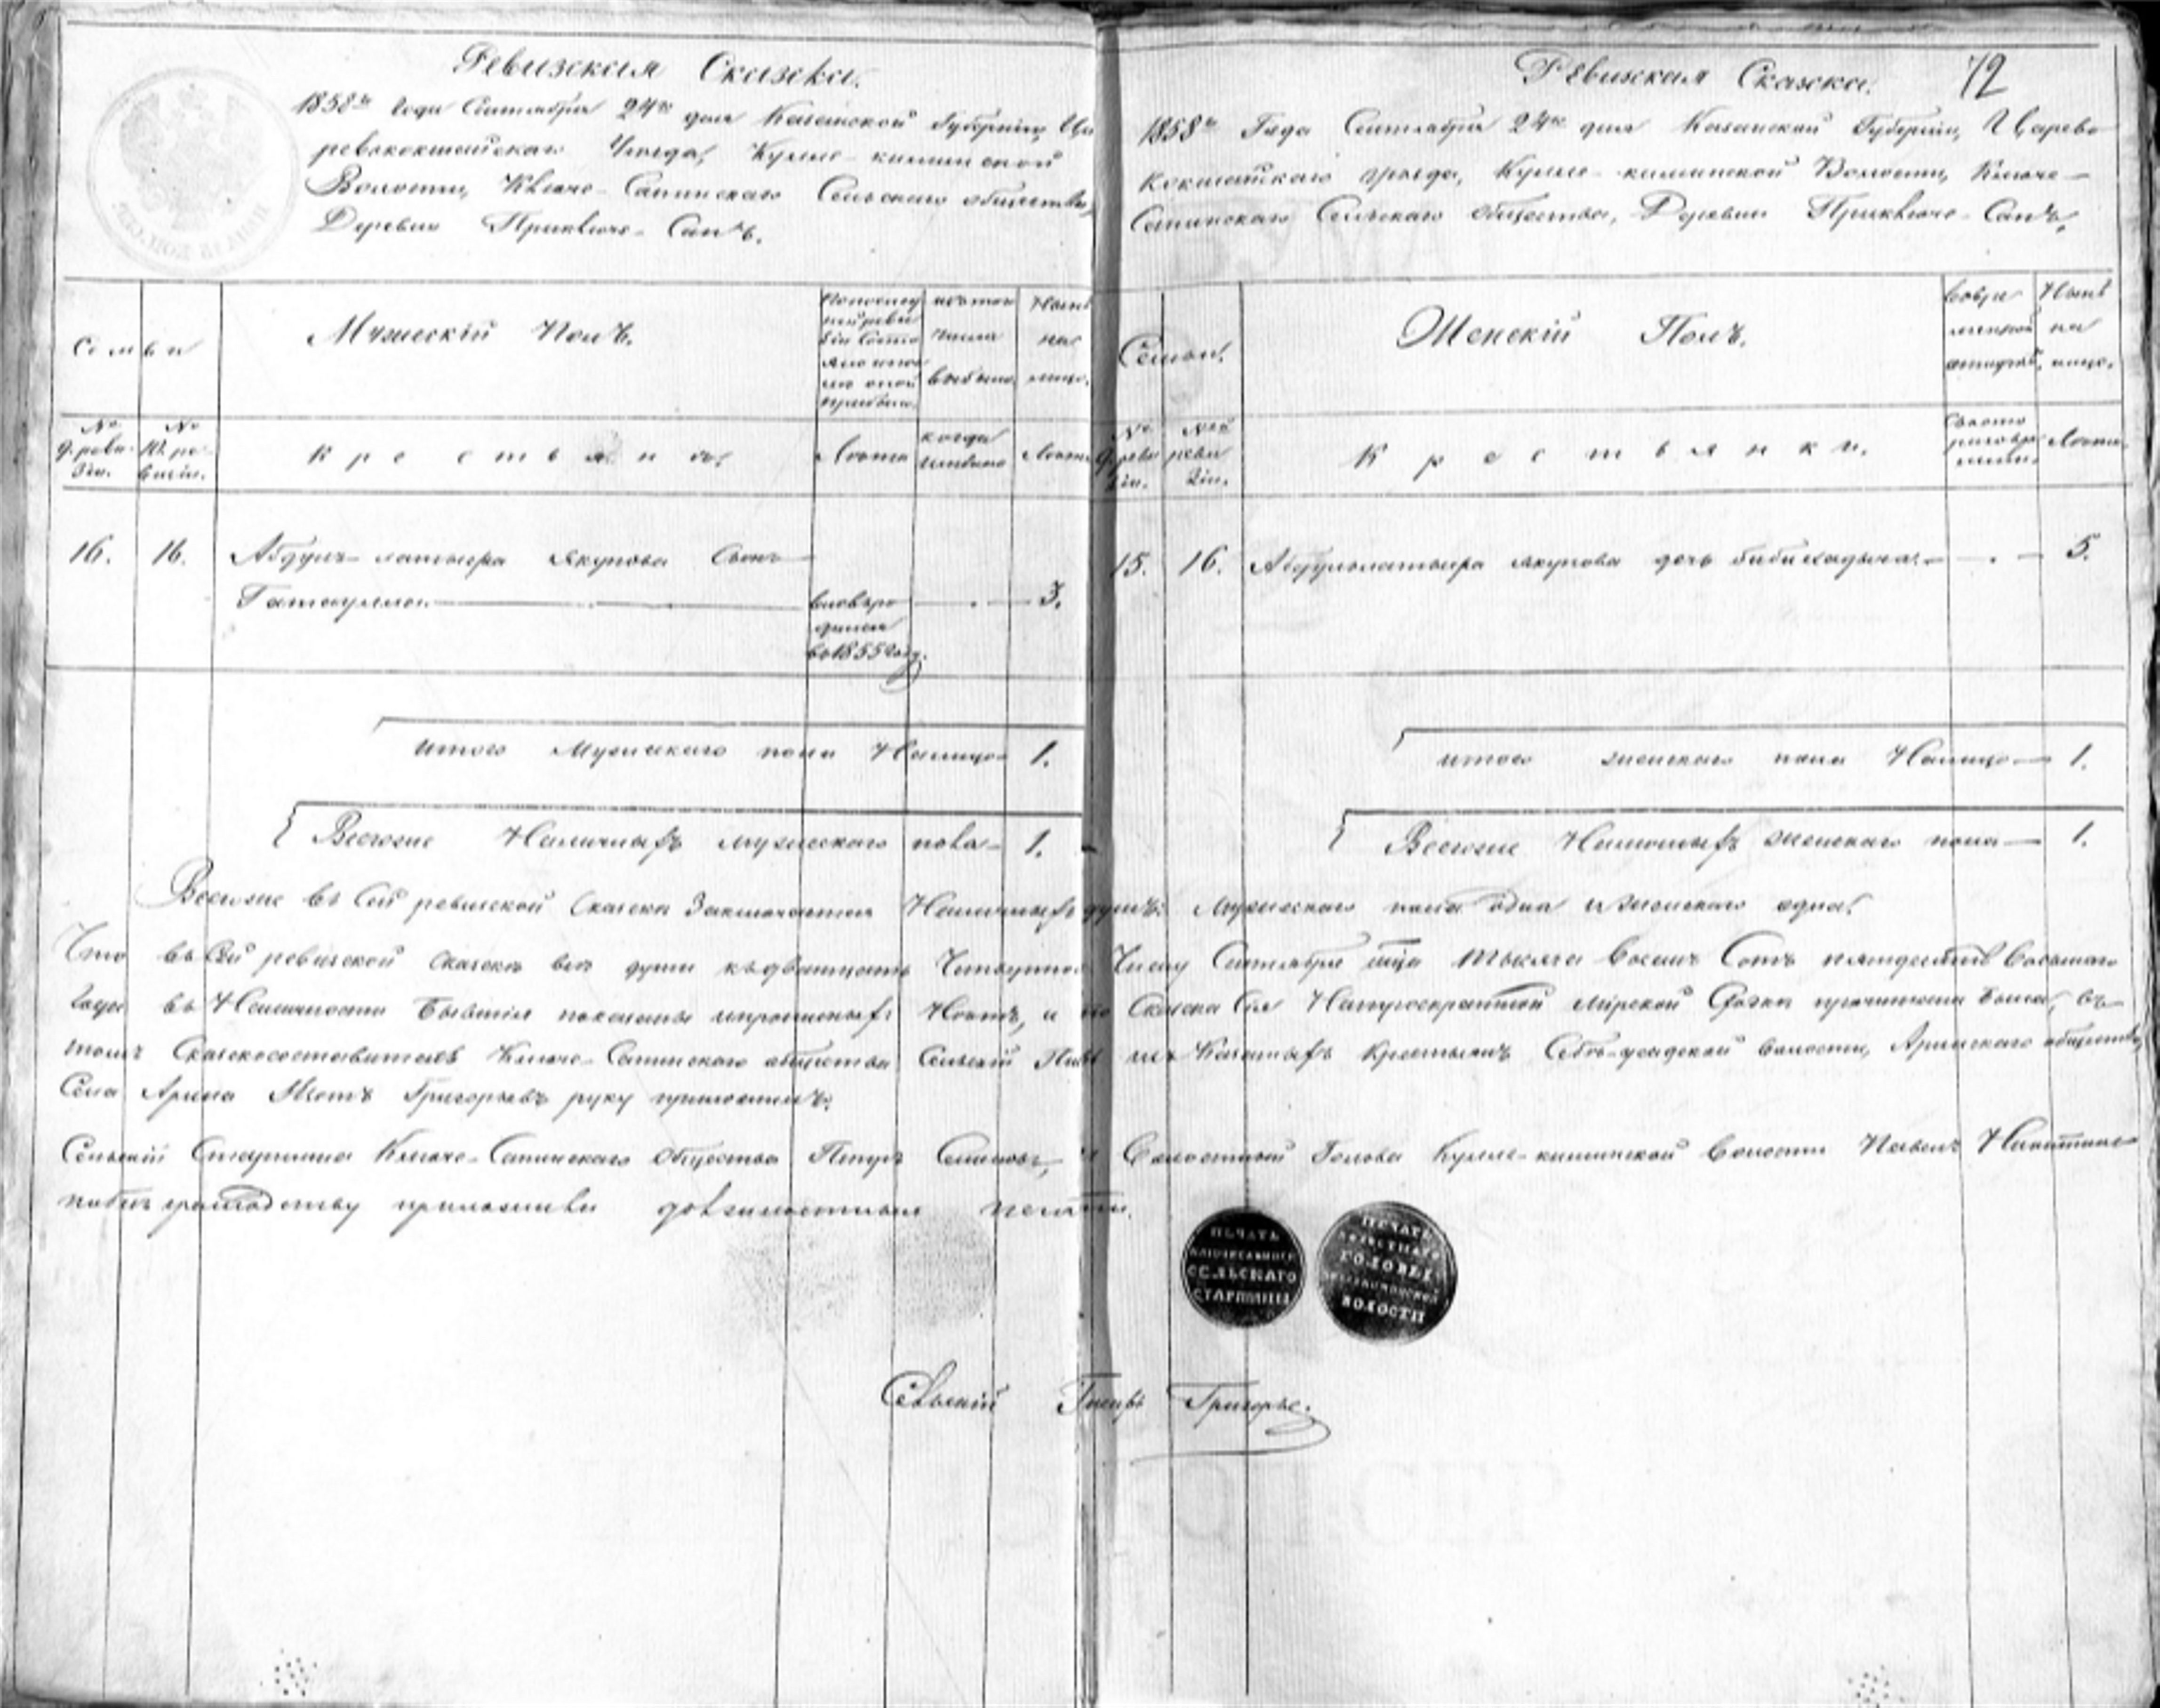 Ревизская Сказка.
1858го Года Сентября 24го дня Казанской Губерніи, Ца
ревококшайскаго Уезда, Кулле-киминской
Волости, Ключе-Сапинскаго Сельскаго общества,
Деревни Приключе-Сапъ.
Семьи
Мужескій Полъ.
изъ того числа выбыло
Ныне на лицо.
№ 9. ревизіи.
№ 10. ревизіи.
Крестьяне
Лета
когда именно
Лета
16. 16. Абдулъ-латыфа Якупова Сынъ
Гатаулла 3.
вновь ро
дился
въ 1855 году.
итого Мужескаго пола Налицо 1.
Всего же Наличныхъ мужескаго пола 1.
Ревизская Сказка. 72
1858го Года Сентября 24го дня Казанской Губерніи, Царево
кокшайскаго уезда, Кулле-киминской Волости, Ключе-
Сапинскаго Сельскаго общества, Деревни Приключе-Сапъ,
Семьи.
Женскій Полъ.
Ныне на лицо.
Крестьянки.
Лета.
15. 16. Абдулълатыфа якупова дочь бибихадыча 5.
итого женскаго пола Налицо 1.
Всего же Наличныхъ женскаго пола 1.
Всего же въ Сей ревизской Сказке Заключается Наличныхъ душъ: Мужескаго пола одна и Женскаго одна.
Что въ Сей ревизской Сказке все души къ двадцать Четвертому Числу Сентября м-ца тысяча восемь Сотъ пятдесятъ восьмаго
года въ Наличности Бывшія показаны и Сказка Сія мірской прочитана была, въ
томъ Сказкосоставитель Ключе-Сапинскаго общества Сельскій изъ крестьянъ волости, Аринскаго общества,
Села Арина Григорьевъ руку приложилъ.
Сельскій Старшина Ключе-Сапинскаго Общества Петръ Семеновъ, и Волостной Голова Кулле-киминской Волости Павелъ
приложили должностныя печати.
ПЕЧАТЬ
СЕЛЬСКАГО
СТАРШИНЫ
ПЕЧАТЬ
ГОЛОВЫ
ВОЛОСТИ
Сельскій Писарь Григорье.